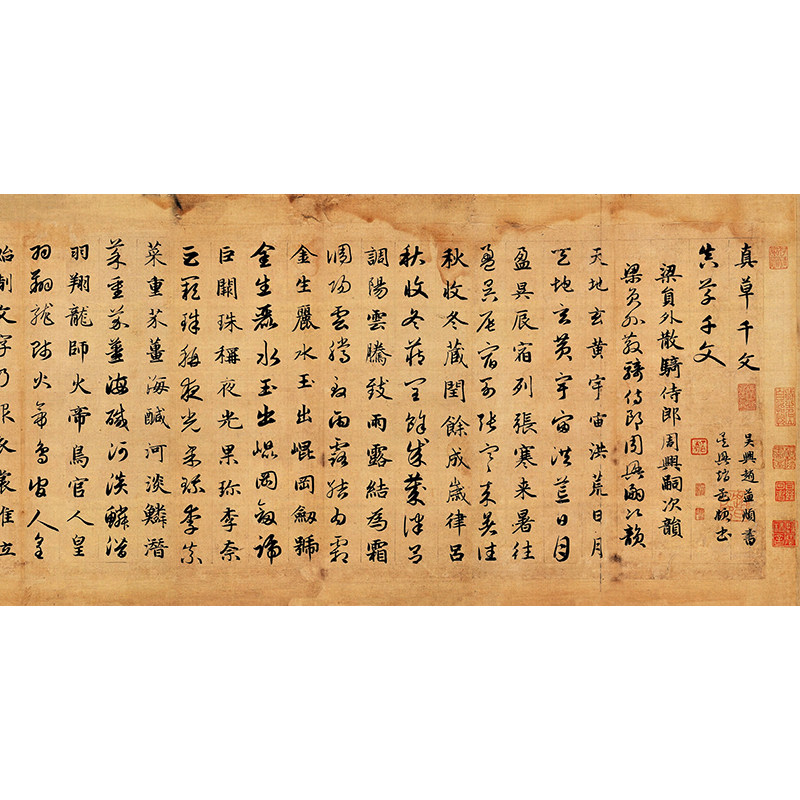 真草千文
吳興趙孟頫書
真草千文
吳興趙孟頫書
梁員外散騎侍郎周興嗣次韻
梁員外散騎侍郎周興嗣次韻
天地玄黃宇宙洪荒日月
天地玄黃宇宙洪荒日月
盈昃辰宿列張寒来暑往
盈昃辰宿列張寒来暑往
秋收冬藏閏餘成歲律呂
秋收冬藏閏餘成歲律呂
調陽雲騰致雨露結為霜
調陽雲騰致雨露結為霜
金生麗水玉出崐岡劔號
金生麗水玉出崐岡劔號
巨闕珠稱夜光果珍李柰
巨闕珠稱夜光果珍李柰
菜重芥薑海鹹河淡鱗潛
菜重芥薑海鹹河淡鱗潛
羽翔龍師火帝鳥官人皇
羽翔龍師火帝鳥官人皇
始制文字乃服衣裳推位